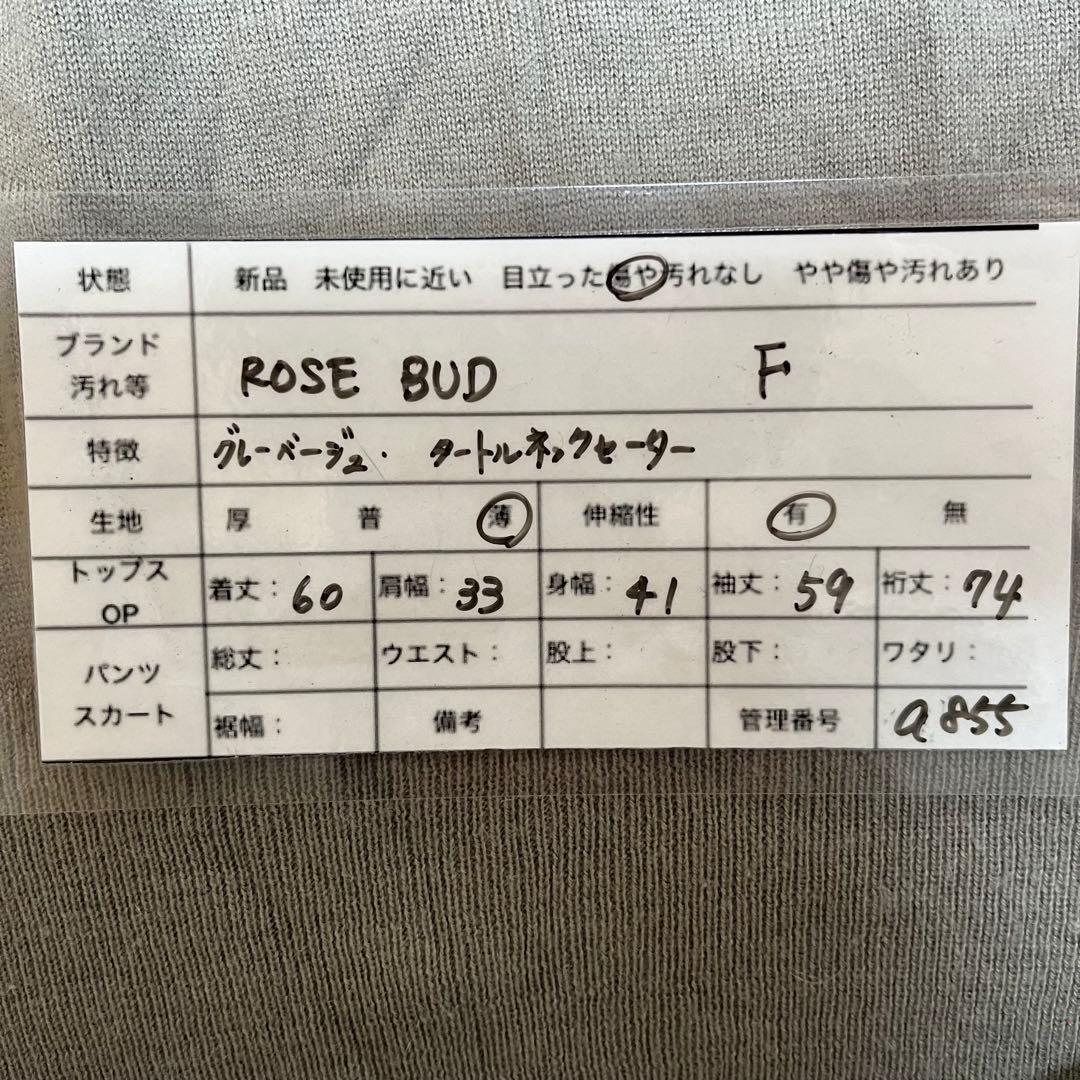 状態 新品 未使用に近い 目立った傷や汚れなし やや傷や汚れあり
ブランド
汚れ等 ROSE BUD F
特徴 グレーベージュ. タートルネックセーター
生地 厚 普 薄 伸縮性 有 無
トップス
OP 着丈: 60 肩幅: 33 身幅: 41 袖丈: 59 裄丈: 74
パンツ
スカート
総丈: ウエスト: 股上: 股下: ワタリ:
裾幅: 備考 管理番号 a855